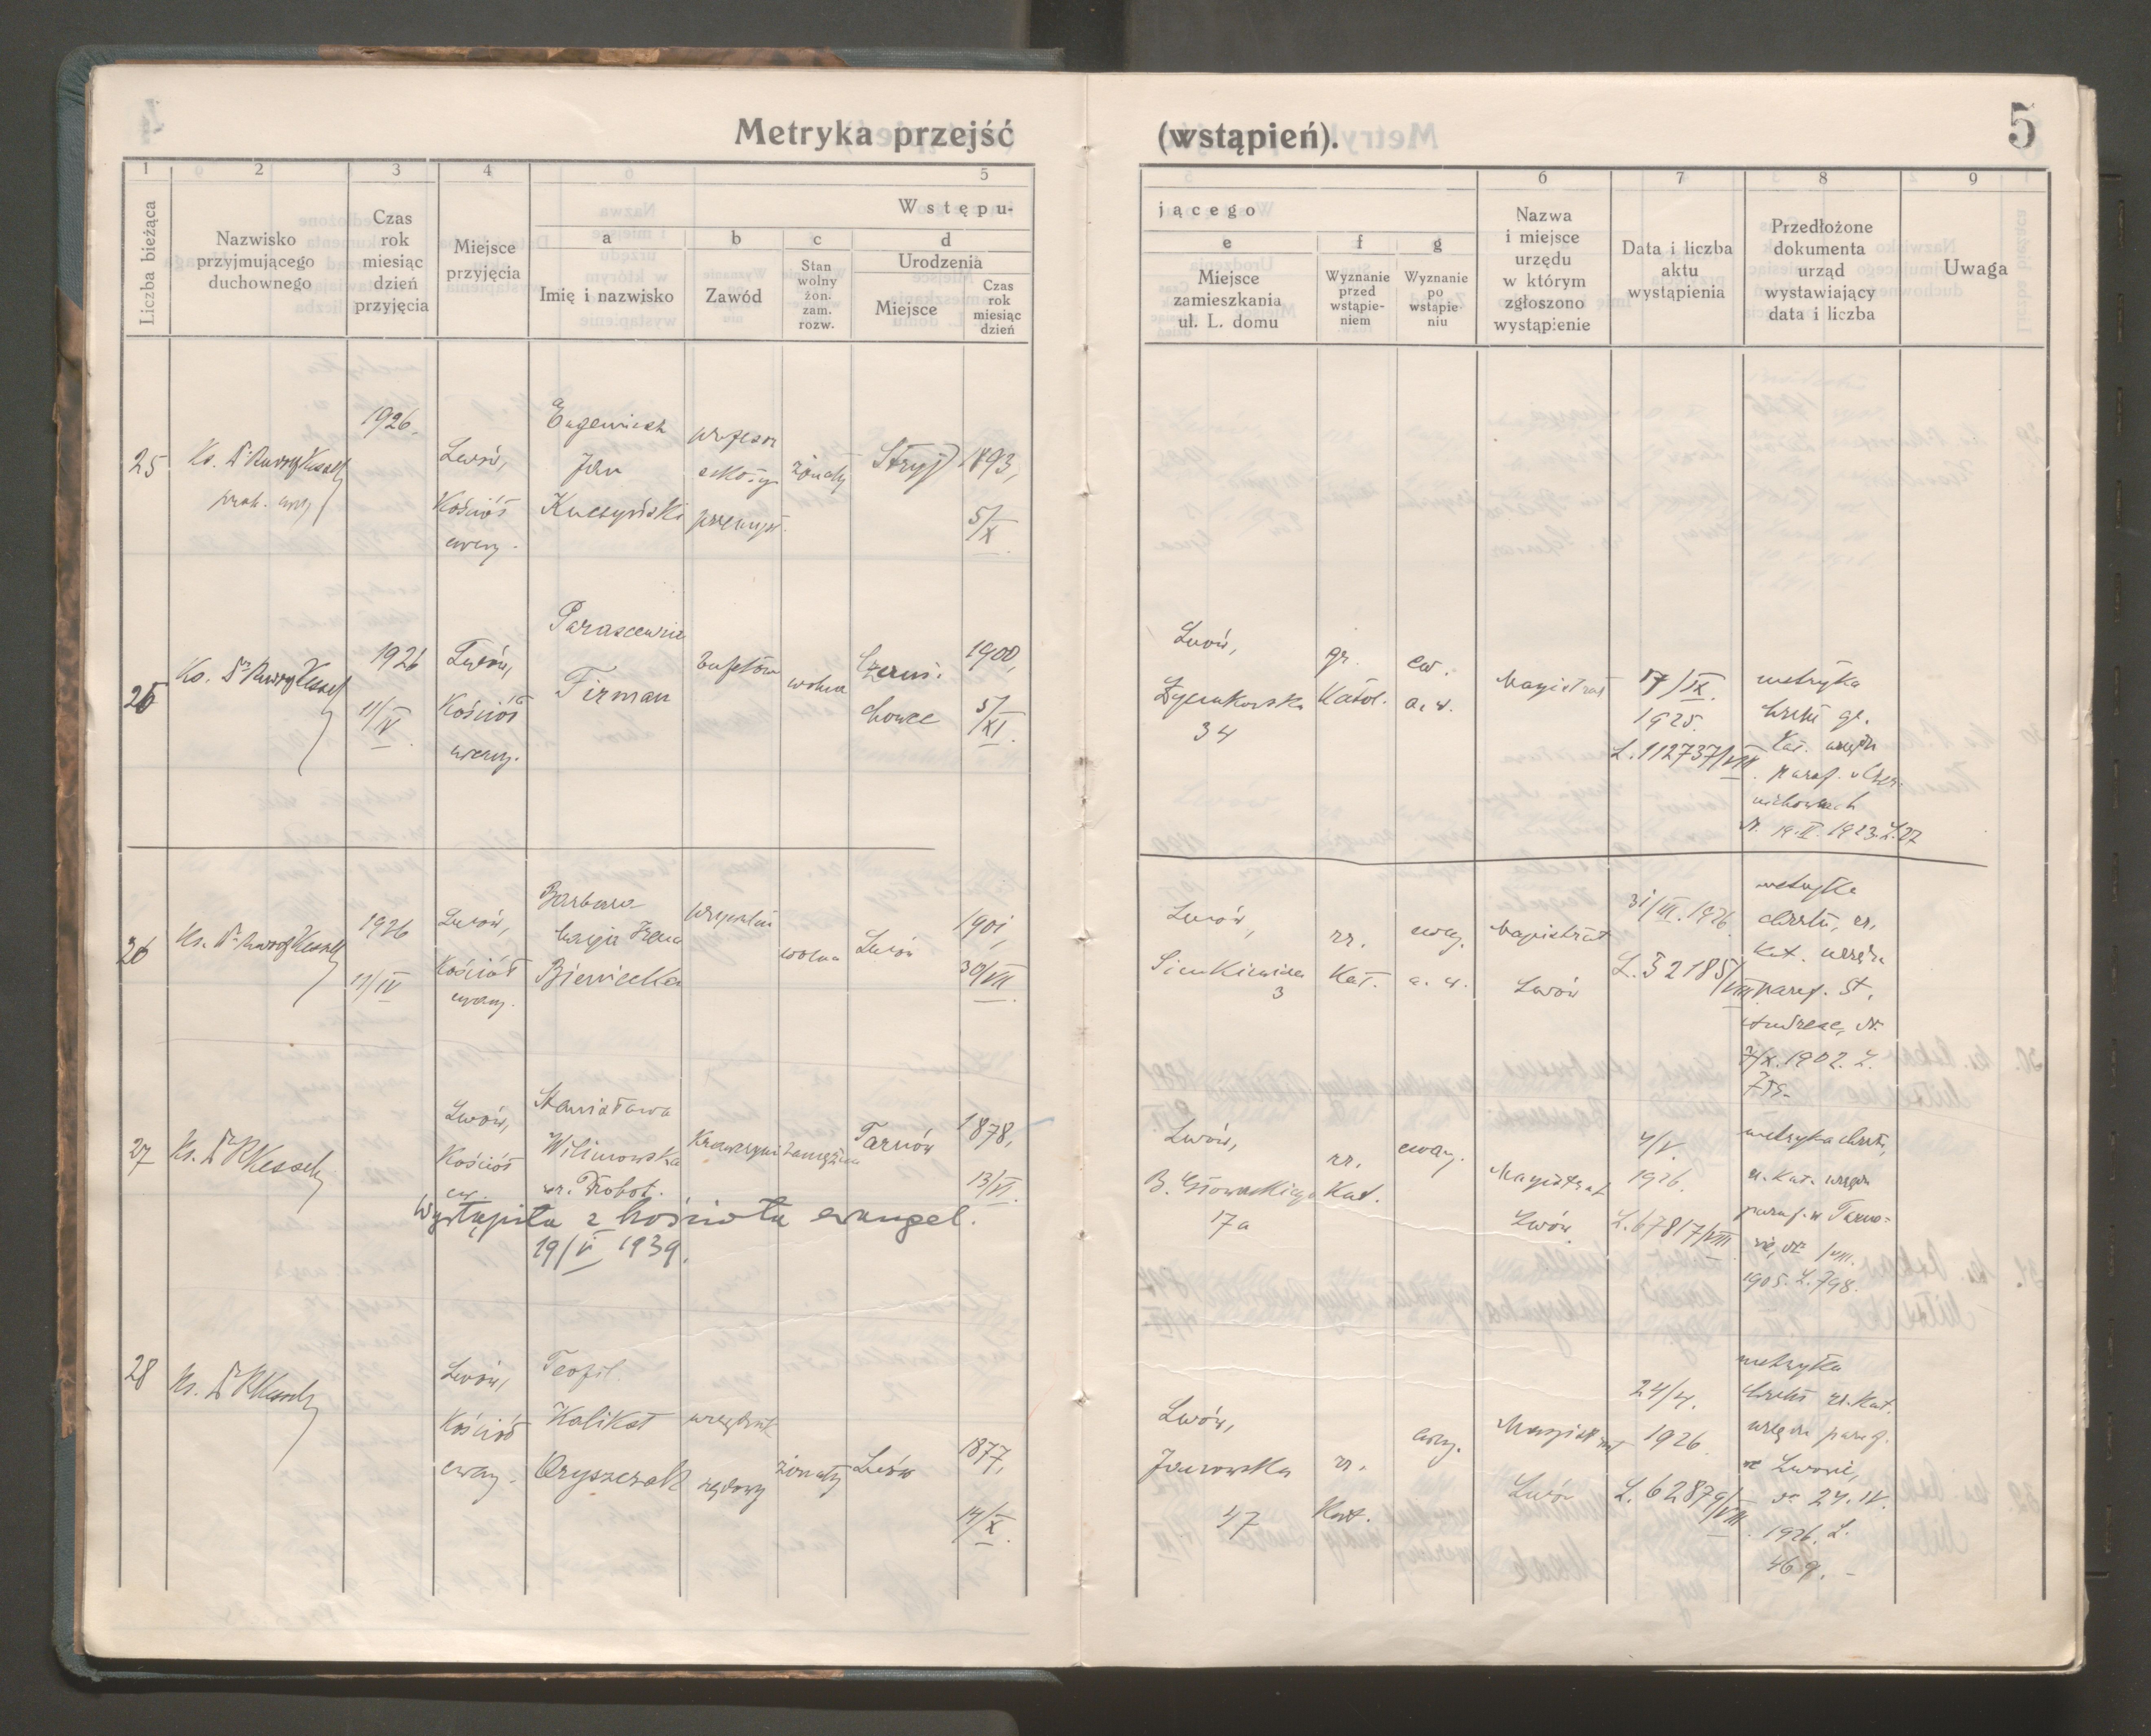 Metryka przejść
(wstąpień).
5
1
2
3
4
5
Liczba bieżąca
Nazwisko
przyjmującego
duchownego
Czas
rok
miesiąc
dzień
przyjęcia
Miejsce
przyjęcia
Wstępu-
a
b
c
d
Imię i nazwisko
Zawód
Stan
wolny
żon.
zam.
rozw.
Urodzenia
Miejsce
Czas
rok
miesiąc
dzień
6
7
8
9
jącego
e
f
g
Miejsce
zamieszkania
ul. L. domu
Wyznanie
przed
wstąpie-
niem
Wyznanie
po
wstąpie-
niu
Nazwa
i miejsce
urzędu
w którym
zgłoszono
wystąpienie
Data i liczba
aktu
wystąpienia
Przedłożone
dokumenta
urząd
wystawiający
data i liczba
Uwaga
25
Ks. Dr Kessel
1926.
Lwów,
Kościół
ewang.
Eugeniusz
Jan
Kuczyński
profesor
szkoły
przemysł.
żonaty
Stryj
1893,
5/X.
26
Ks. Dr Kessel
1926
11/IV.
Lwów,
Kościół
ewang.
Parascewia
Firman
wolna
Czerni-
chowce
1900,
5/XI.
Lwów,
Łyczakowska
34
gr.
Katol.
ew.
a. w.
Magistrat
17/IX.
1925.
L. 112737/VIII.
metryka
chrztu gr.
kat. urzędu
paraf. w Czer-
nichowcach
19. II. 1923. L. 27
26
Ks. Dr Kessel
1926
11/IV
Lwów,
Kościół
ewang.
Barbara
Marja Irena
Bieniecka
wolna
Lwów
1901,
30/VII.
Lwów,
Sienkiewicza
3
rz.
Kat.
ewang.
a. w.
Magistrat
Lwów
31/III. 1926.
L. 52185/VIII.
metryka
chrztu, rz.
kat. urzędu
paraf. St.
Andrzeja, dr.
7/X. 1902. L.
755.
27
Ks. Dr R Kessel
Lwów,
Kościół
ew.
Stanisława
Wilimowska
ur. Drobot.
Krawczyni
zamężna
Tarnów
1878,
13/VI.
Wystąpiła z kościoła evangel.
19/V 1939.
Lwów,
B. Głowackiego
17a
rz.
Kat.
ewang.
Magistrat
Lwów.
4/V.
1926.
L. 67817/VIII.
metryka chrztu,
rz. kat. urzędu
paraf. w Tarno-
wie, dr. 1/VIII.
1905. L. 798.
28
Ks. Dr R Kessel
Lwów,
Kościół
ewang.
Teofil
Kalikst
Oryszczak
urzędnik
rządowy
żonaty
Lwów
1877,
14/X.
Lwów,
Janowska
47
rz.
Kat.
ewang.
Magistrat
Lwów
24/4.
1926.
L. 62879/VIII.
metryka
chrztu rz. kat.
urzędu paraf.
we Lwowie,
dr 24. IV.
1926. L.
469. -